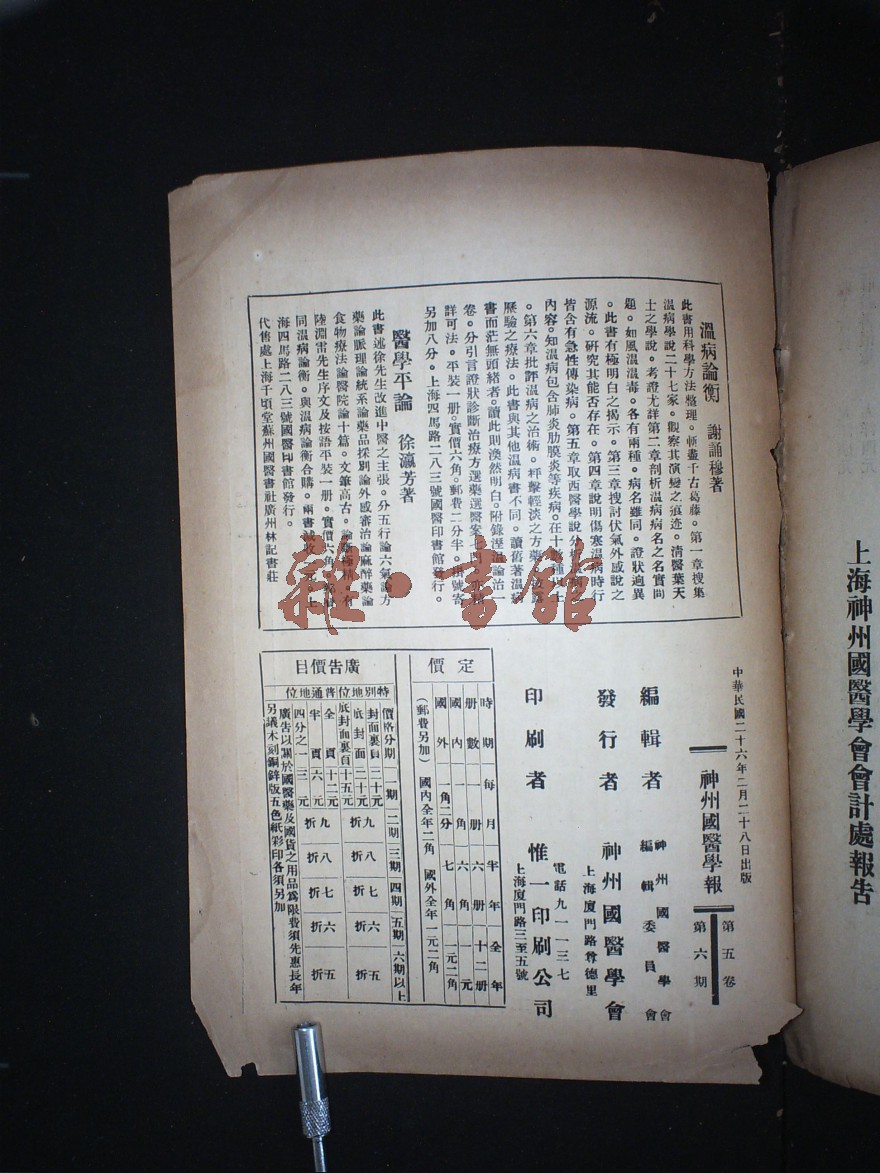 上海神州國醫學會會計處報告
溫病論衡　謝誦穆著
此書用科學方法整理。斬盡千古葛藤。第一章搜集
溫病學說二十七家。觀察其演變之痕迹。清醫葉天
士之學說。考證尤詳第二章剖析溫病病名之名實問
題。如風溫溫毒。各有兩種。病名雖同。證狀逈異
。此書有極明白之揭示。第三章搜討伏氣外感說之
源流。研究其能否存在。第四章說明傷寒溫病時行
皆含有急性傳染病。第五章取西醫學說分
內容。知溫病包含肺炎肋膜炎等疾病。在十
。第六章批評溫病之治術。抨擊輕淡之方藥
歷驗之療法。此書與其他溫病書不同。讀舊著溫病
書而茫無頭緒者。讀此則渙然明白。附錄溼溫論治一
卷。分引言證狀診斷治療方選藥選醫案
詳可法。平裝一册。實價六角。郵費二分半。掛號寄
另加八分。上海四馬路二八三號國醫印書館發行。
醫學平論　徐瀛芳著
此書述徐先生改進中醫之主張。分五行論六氣論方
藥論脈理論統系論藥品採別論外感審治論麻醉藥論
食物療法論醫院論十篇。文筆高古。論斷精
陸淵雷先生序文及按語平裝一册。實價六角
同溫病論衡。與溫病論衡合購。兩書減收
海四馬路二八三號國醫印書館發行。
代售處上海千頃堂蘇州國醫書社廣州林記書莊
雜·書館
中華民國二十六年二月二十八日出版
神州國醫學報
第五卷
第六期
編輯者　神州國醫學會
編輯委員會
發行者　神州國醫學會
上海廈門路尊德里
電話九一一三七
印刷者　惟一印刷公司
上海廈門路三至五號
定價
時期　每月　半年　全年
册數　一册　六册　十二册
國內　一角　六角　一元
國外　一角二分　七角　一元二角
（郵費另加）　國內全年二角　國外全年一元二角
廣告價目
價格分期　一期　二期　三期　四期　五期　六期以上
特別地位
封面裏頁　二十元
底封面　二十元
底封面裏頁　十五元
九折　八折　七折　六折　五折
普通地位
全頁　十二元
半頁　六元
四分之一　三元
九折　八折　七折　六折　五折
廣告以關於國醫藥及國貨之用品爲限費須先惠長年
另議木刻銅鋅版五色紙彩印各須另加